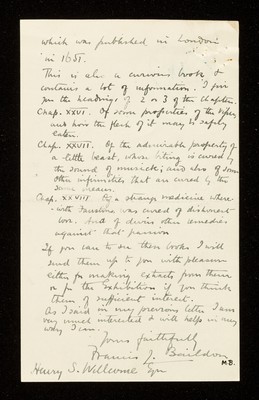 which was published in London
in 1651.
This is also a curious book &
contains a lot of information. I give
you the headings of 2 or 3 of the chapters.
Chap. XXVI. Of some properties of the Viper
and how the flesh of it may be safely
eaten.
Chap. XXVII. Of the admirable property of
a little beast, whose biting is cured by
the sound of musick; and also of some
other infirmities that are cured by the
same means.
Chap. XXVIII By a strange medicine where
-with Faustina was cured of dishonest
love. And of divers other remedies
against that passion.
If you care to see these books I will
send them up to you with pleasure
either for making extracts from them
or for the Exhibition if you think
them of sufficient interest.
As I said in my previous letter I am
very much interested & will help in any
way I can.
Yours faithfully
Francis J. Baildon
M.B.
Henry S. Wellcome Esq